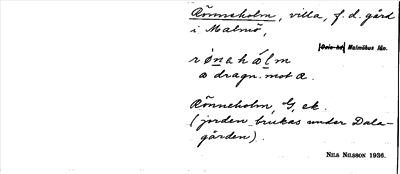 Rönneholm, villa, f. d. gård
i Malmö,
Oxie hd Malmöhus län.
rönahålm
a dragn. mot a.
Rönneholm, G, ek.
(jorden brukas under Dala-
gården).
NILS NILSSON 1936.